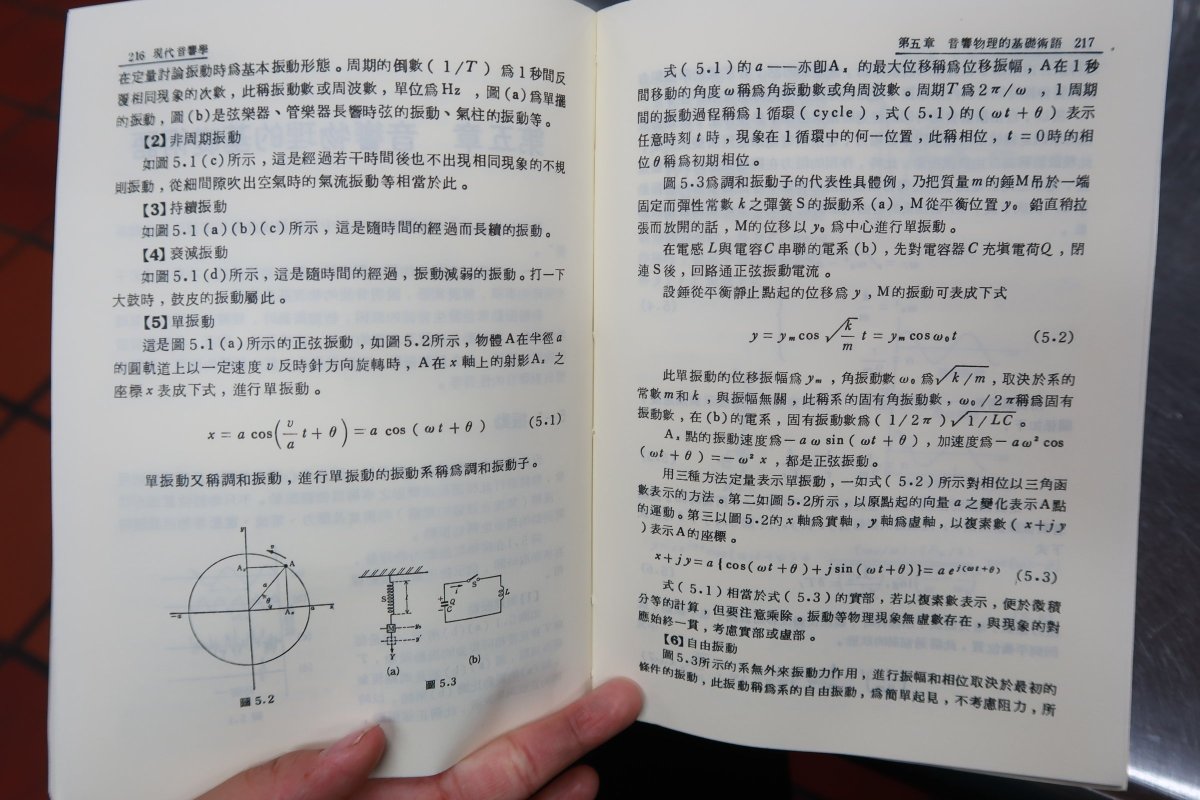 216 現代音響學
在定量討論振動時爲基本振動形態。周期的倒數(1/T)爲1秒間反
覆相同現象的次數,此稱振動數或周波數,單位爲Hz,圖(a)爲單擺
的振動,圖(b)是弦樂器、管樂器長響時弦的振動、氣柱的振動等。
【2】非周期振動
如圖5.1(c)所示,這是經過若干時間後也不出現相同現象的不規
則振動,從細間隙吹出空氣時的氣流振動等相當於此。
【3】持續振動
如圖5.1(a)(b)(c)所示,這是隨時間的經過而長續的振動。
【4】衰減振動
如圖5.1(d)所示,這是隨時間的經過,振動減弱的振動。打一下
大鼓時,鼓皮的振動屬此。
【5】單振動
這是圖5.1(a)所示的正弦振動,如圖5.2所示,物體A在半徑a
的圓軌道上以一定速度v反時針方向旋轉時,A在x軸上的射影Aₓ之
座標x表成下式,進行單振動。
x = a cos(v/a t + θ) = a cos (ωt + θ) (5.1)
單振動又稱調和振動,進行單振動的振動系稱爲調和振動子。
y
v
A
Aᵧ
a
θ
-a
Aₓ
a
x
圖5.2
S
M
y₀
y
Y
(a)
S
i
Q
C
L
(b)
圖5.3
第五章 音響物理的基礎術語 217
式(5.1)的a——亦卽Aₓ的最大位移稱爲位移振幅,A在1秒
間移動的角度ω稱爲角振動數或角周波數。周期T爲2π/ω,1周期
間的振動過程稱爲1循環(cycle),式(5.1)的(ωt + θ)表示
任意時刻t時,現象在1循環中的何一位置,此稱相位,t = 0時的相
位θ稱爲初期相位。
圖5.3爲調和振動子的代表性具體例,乃把質量m的錘M吊於一端
固定而彈性常數k之彈簧S的振動系(a),M從平衡位置y₀鉛直稍拉
張而放開的話,M的位移以y₀爲中心進行單振動。
在電感L與電容C串聯的電系(b),先對電容器C充塡電荷Q,閉
連S後,回路通正弦振動電流。
設錘從平衡靜止點起的位移爲y,M的振動可表成下式
y = yₘ cos √k/m t = yₘ cos ω₀t (5.2)
此單振動的位移振幅爲yₘ,角振動數ω₀爲√k/m,取決於系的
常數m和k,與振幅無關,此稱系的固有角振動數,ω₀/2π稱爲固有
振動數,在(b)的電系,固有振動數爲(1/2π)√1/LC。
Aₓ點的振動速度爲-aω sin(ωt + θ),加速度爲-aω² cos
(ωt + θ)=-ω² x,都是正弦振動。
用三種方法定量表示單振動,一如式(5.2)所示對相位以三角函
數表示的方法。第二如圖5.2所示,以原點起的向量a之變化表示A點
的運動。第三以圖5.2的x軸爲實軸,y軸爲虛軸,以複素數(x+jy
)表示A的座標。
x+jy=a{cos(ωt+θ)+jsin(ωt+θ)}=ae^j(ωt+θ) (5.3)
式(5.1)相當於式(5.3)的實部,若以複素數表示,便於微積
分等的計算,但要注意乘除。振動等物理現象無虛數存在,與現象的對
應始終一貫,考慮實部或虛部。
【6】自由振動
圖5.3所示的系無外來振動力作用,進行振幅和相位取決於最初的
條件的振動,此振動稱爲系的自由振動,爲簡單起見,不考慮阻力,所